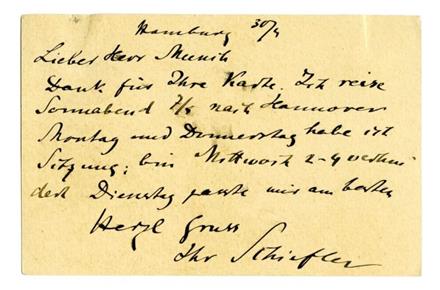 Hamburg 30/4
Lieber Herr Munch
Dank für Ihre Karte. Ich reise
Sonnabend 7/5 nach Hannover
Montag und Donnerstag habe ich
Sitzung; bin Mittwoch 2-4 verhin
dert Dienstag passte mir am besten
Herzl Gruss
Ihr Schiefler